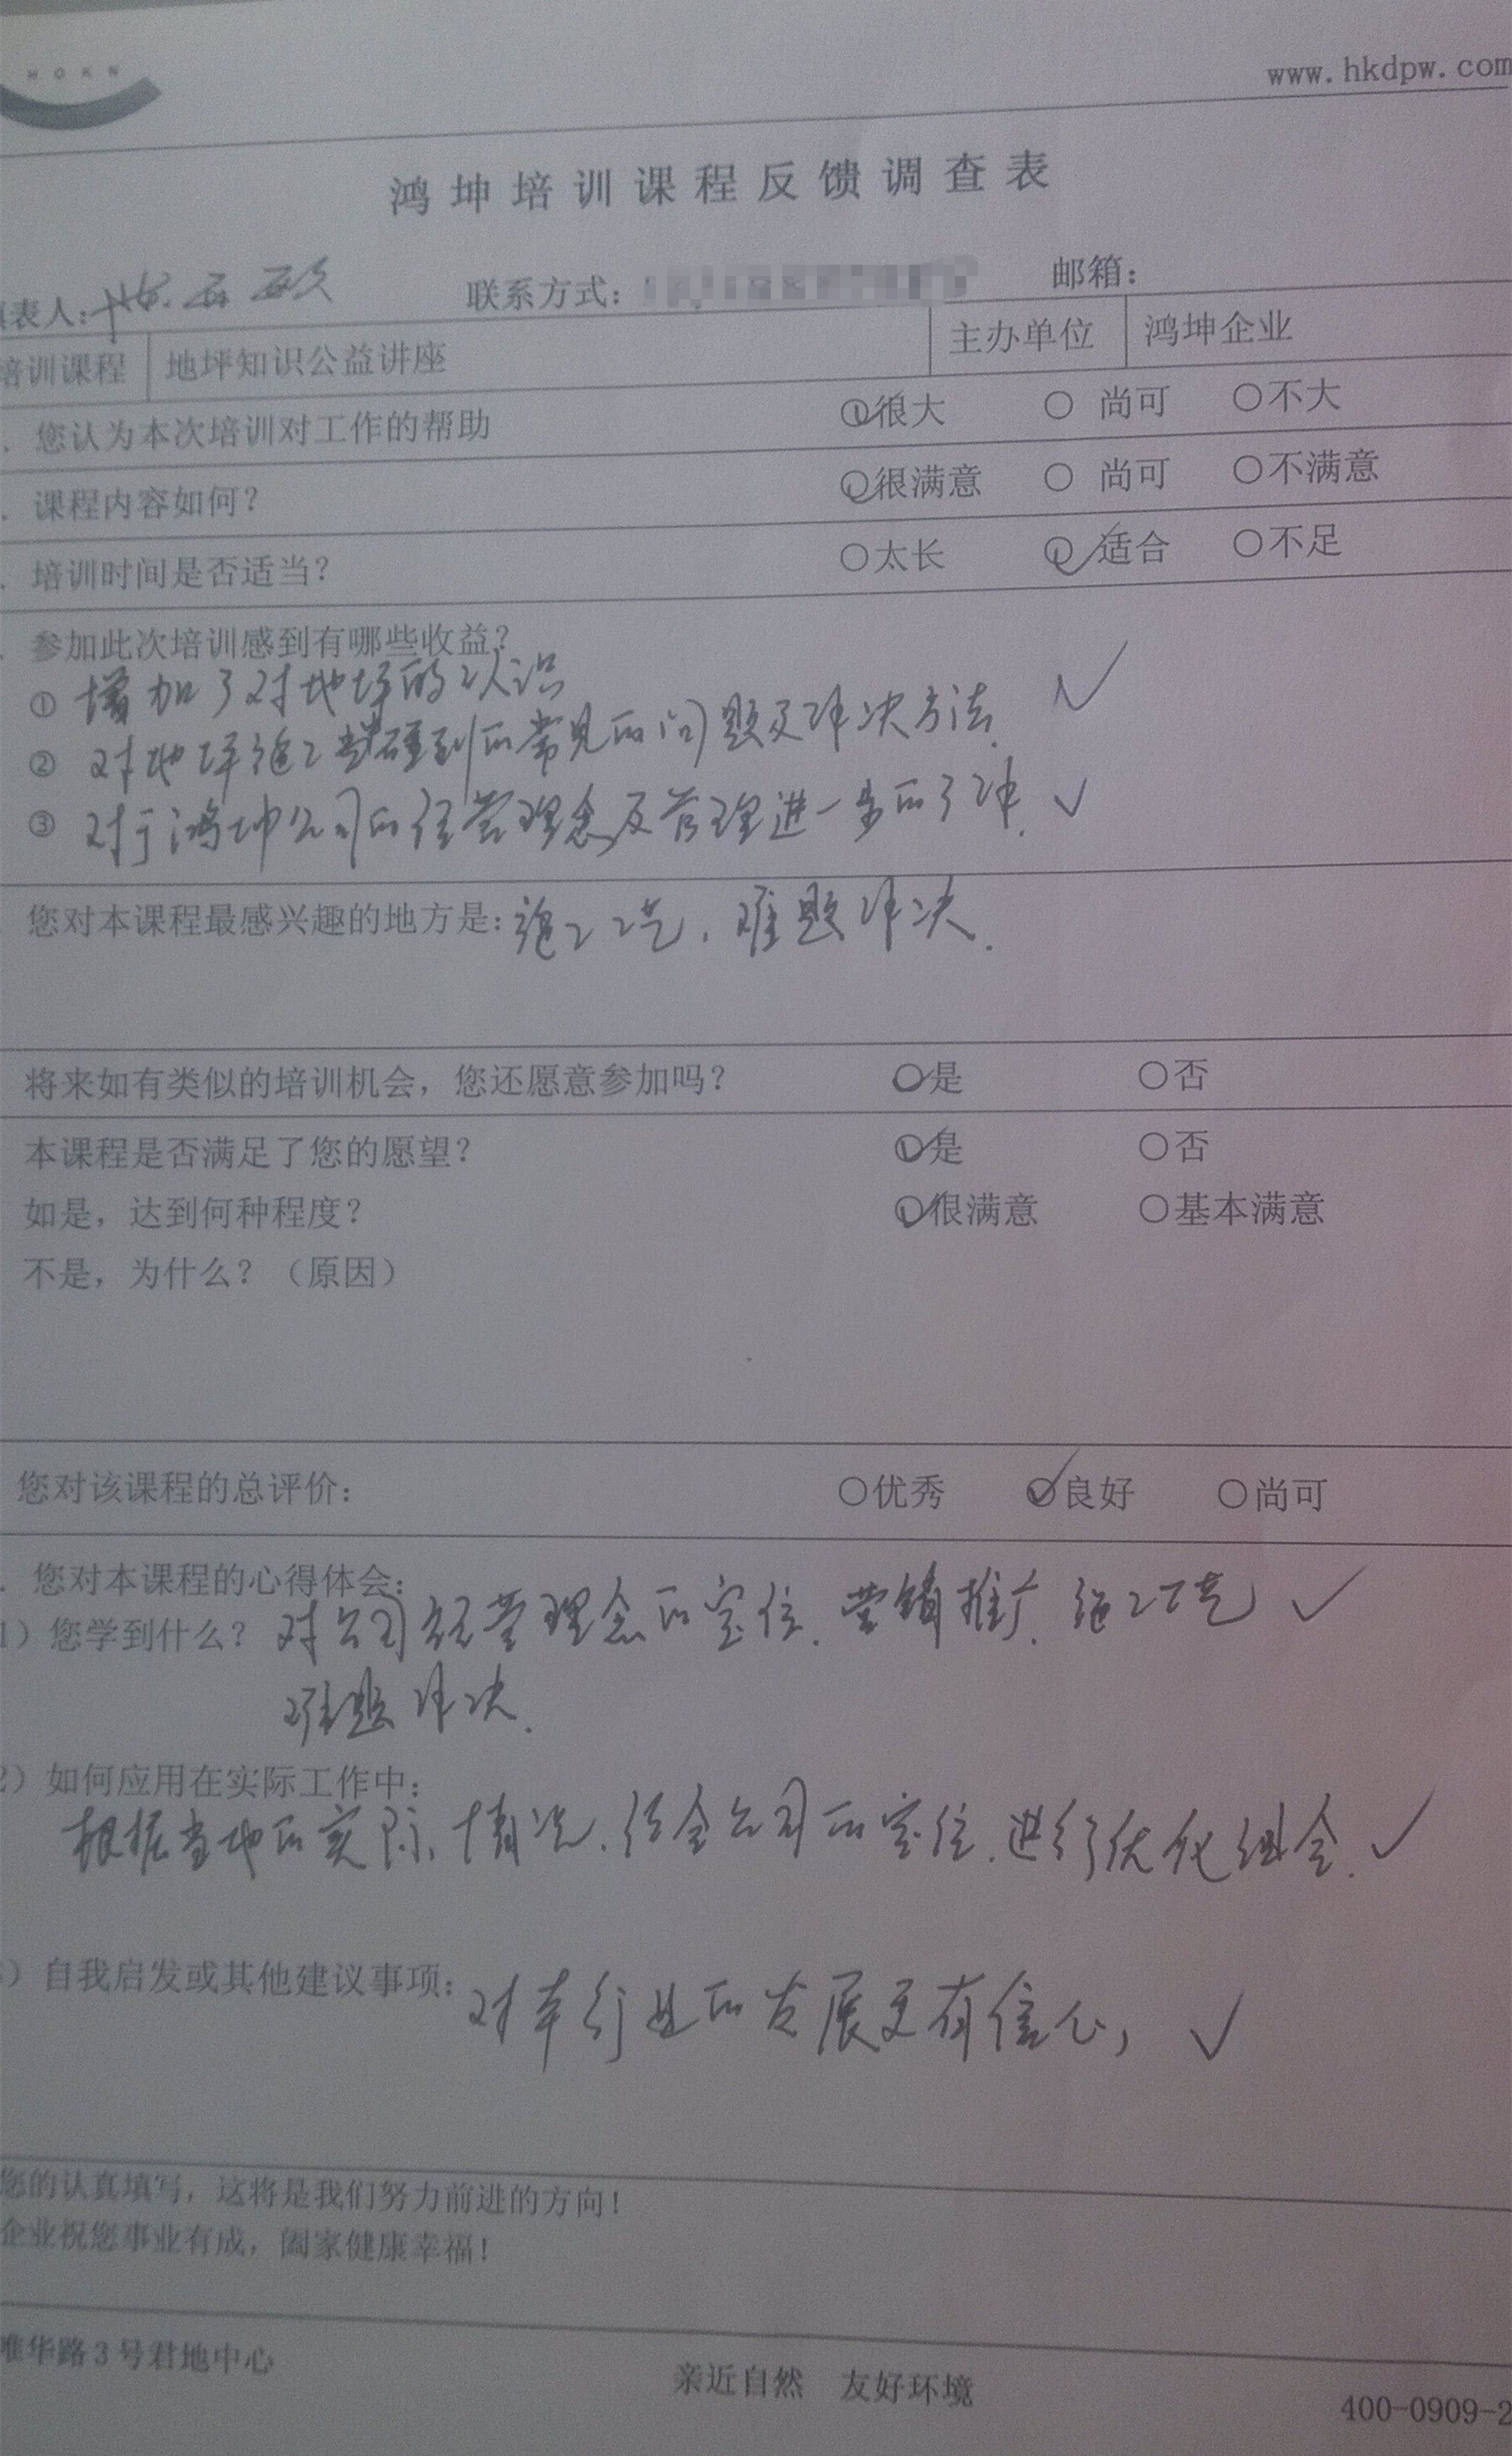 HOKN
www.hkdpw.com
鸿坤培训课程反馈调查表
表人： 联系方式： 邮箱：
培训课程 地坪知识公益讲座 主办单位 鸿坤企业
. 您认为本次培训对工作的帮助 ○很大 ○ 尚可 ○不大
. 课程内容如何？ ○很满意 ○ 尚可 ○不满意
. 培训时间是否适当？ ○太长 ○ 适合 ○不足
. 参加此次培训感到有哪些收益？
① 增加了对地坪的认识
② 对地坪施工当碰到的常见的问题及解决方法.
③ 对于鸿坤公司的经营理念及管理进一步的了解.
您对本课程最感兴趣的地方是：施工工艺.难题解决.
将来如有类似的培训机会，您还愿意参加吗？ ○是 ○否
本课程是否满足了您的愿望？ ○是 ○否
如是，达到何种程度？ ○很满意 ○基本满意
不是，为什么？（原因）
您对该课程的总评价： ○优秀 ○良好 ○尚可
. 您对本课程的心得体会：
1）您学到什么？ 对公司经营理念的定位.营销推广.施工工艺
难题解决.
2）如何应用在实际工作中：
根据当地的实际情况.结合公司的定位.进行优化组合.
）自我启发或其他建议事项：对本行业的发展更有信心,
您的认真填写，这将是我们努力前进的方向！
企业祝您事业有成，阖家健康幸福！
唯华路3号君地中心
亲近自然 友好环境
400-0909-2